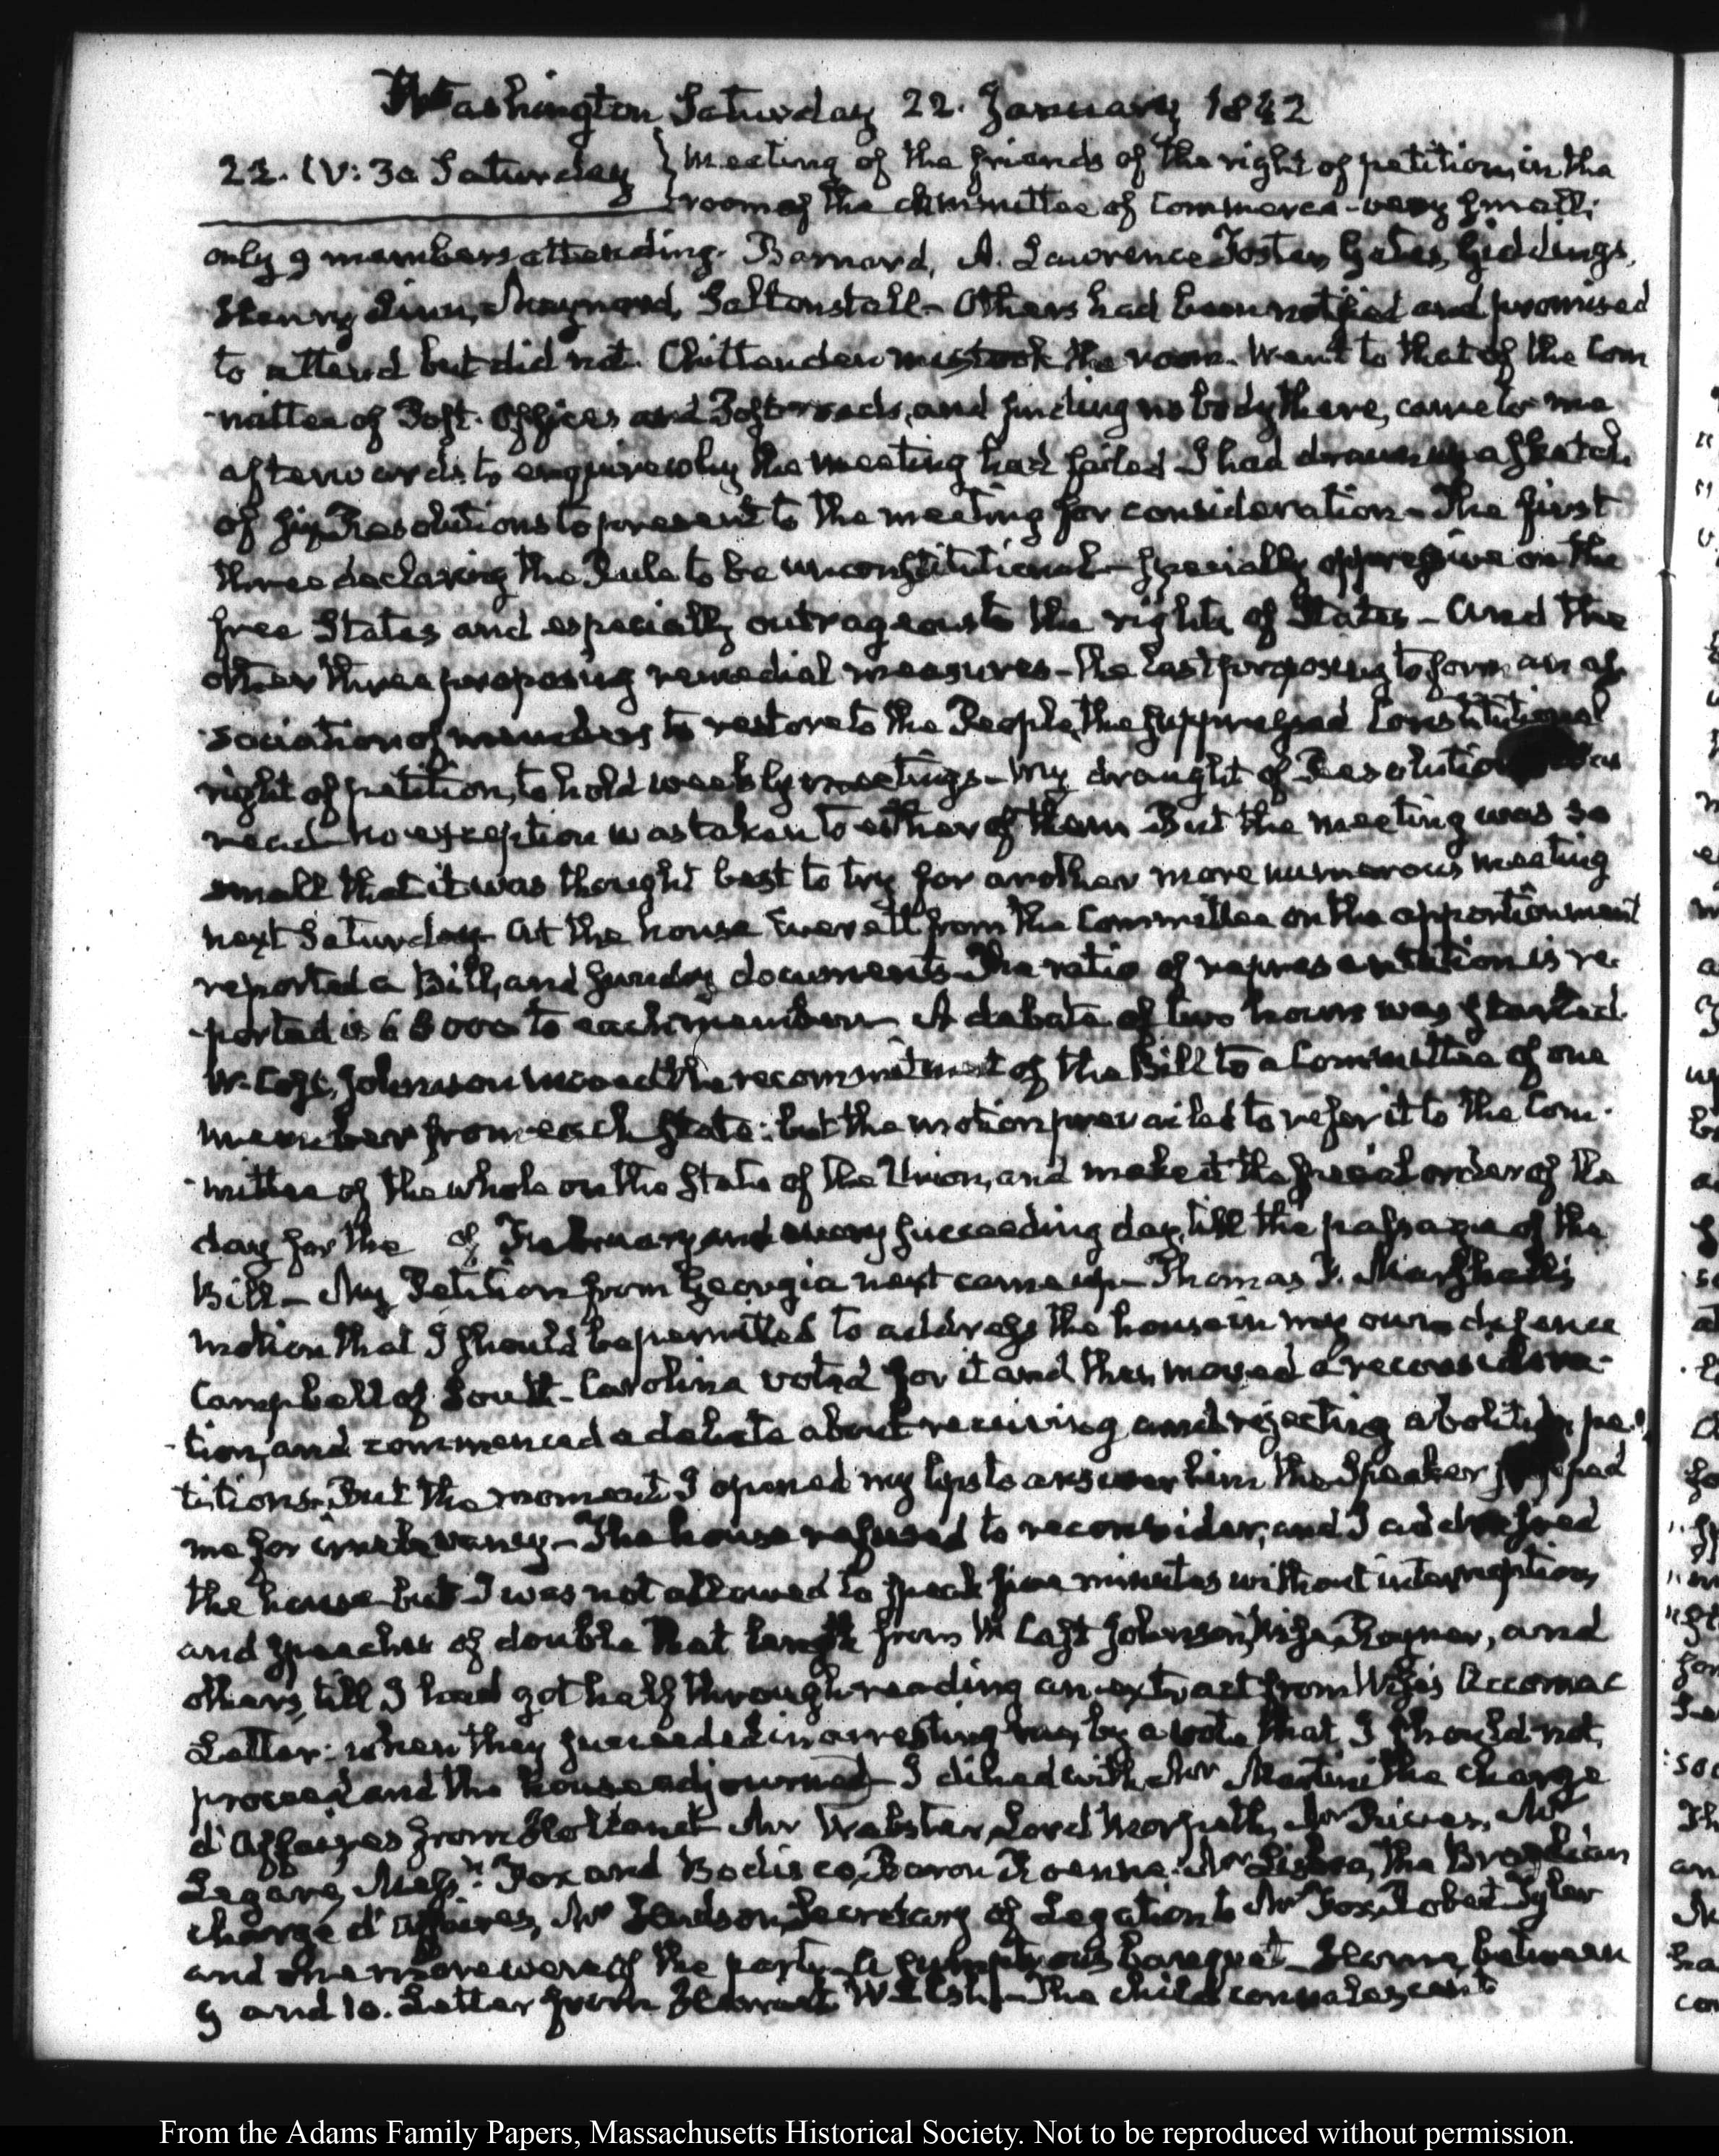 Washington Saturday 22. January 1842
22. IV: 30 Saturday
Meeting of the friends of the right of petition, in the
room of the committee of Commerce - very small;
only 9 members attending. Barnard, A. Lawrence Foster, Gates, Giddings,
Henry, Linn, Maynard, Saltonstall - Others had been notified and promised
to attend but did not. Chittenden mistook the room. Went to that of the Com
mittee of Post-Offices and Post-roads, and finding nobody there, came to me
afterwards to enquire why the meeting had failed - I had drawn up a sketch
of six Resolutions to present to the meeting for consideration - The first
three declaring the Rule to be unconstitutional - specially oppressive on the
free States and especially outrageous to the rights of States - And the
other three proposing remedial measures - the last proposing to form an as
sociation of members to restore to the People, the suppressed Constitutional
right of petition, to hold weekly meetings - My draught of Resolutions was
read - no exception was taken to either of them But the meeting was so
small that it was thought best to try for another more numerous meeting
next Saturday - At the house Everett from the Committee on the apportionment
reported a Bill, and sundry documents - The ratio of representation is re-
ported is 68000 to each member - A debate of two hours was started
W. Cost. Johnson moved the recommitment of the Bill to a Committee of one
member from each State: but the motion prevailed to refer it to the Com-
mittee of the whole on the State of the Union, and make it the special order of the
day for the of February and every succeeding day, till the passage of the
Bill - My Petition from Georgia next came up - Thomas F. Marshall's
motion that I should be permitted to address the house in my own defence
Campbell of South-Carolina voted for it and then moved a reconsidera-
tion, and commenced a debate about receiving and rejecting abolition pe-
titions. But the moment I opened my lips to answer him the Speaker stopped
me for irrelevancy - The house refused to reconsider, and I addressed
the house but I was not allowed to speak five minutes without interruption,
and speeches of double that length from W Cost Johnson, Wise, Rayner, and
others, till I had got half through reading an extract from Wise's Accomac
Letter: when they succeeded in arresting me, by a vote that I should not
proceed and the house adjourned - I dined with Mr Martini the Chargé
d'Affaires from Holland Mr Webster, Lord Morpeth, Mr Rives, Mr
Legaré, Messrs. Fox and Bodisco, Baron Roenne, Mr Lisboa, the Brazilian
Chargé d'Affaires, Mr Secretary of Legation to Mr Fox, Robert Tyler
and one more were of the party - A sumptuous banquet - Home, between
9 and 10. Letter from Harriet Welsh - The child convalescent
From the Adams Family Papers, Massachusetts Historical Society. Not to be reproduced without permission.